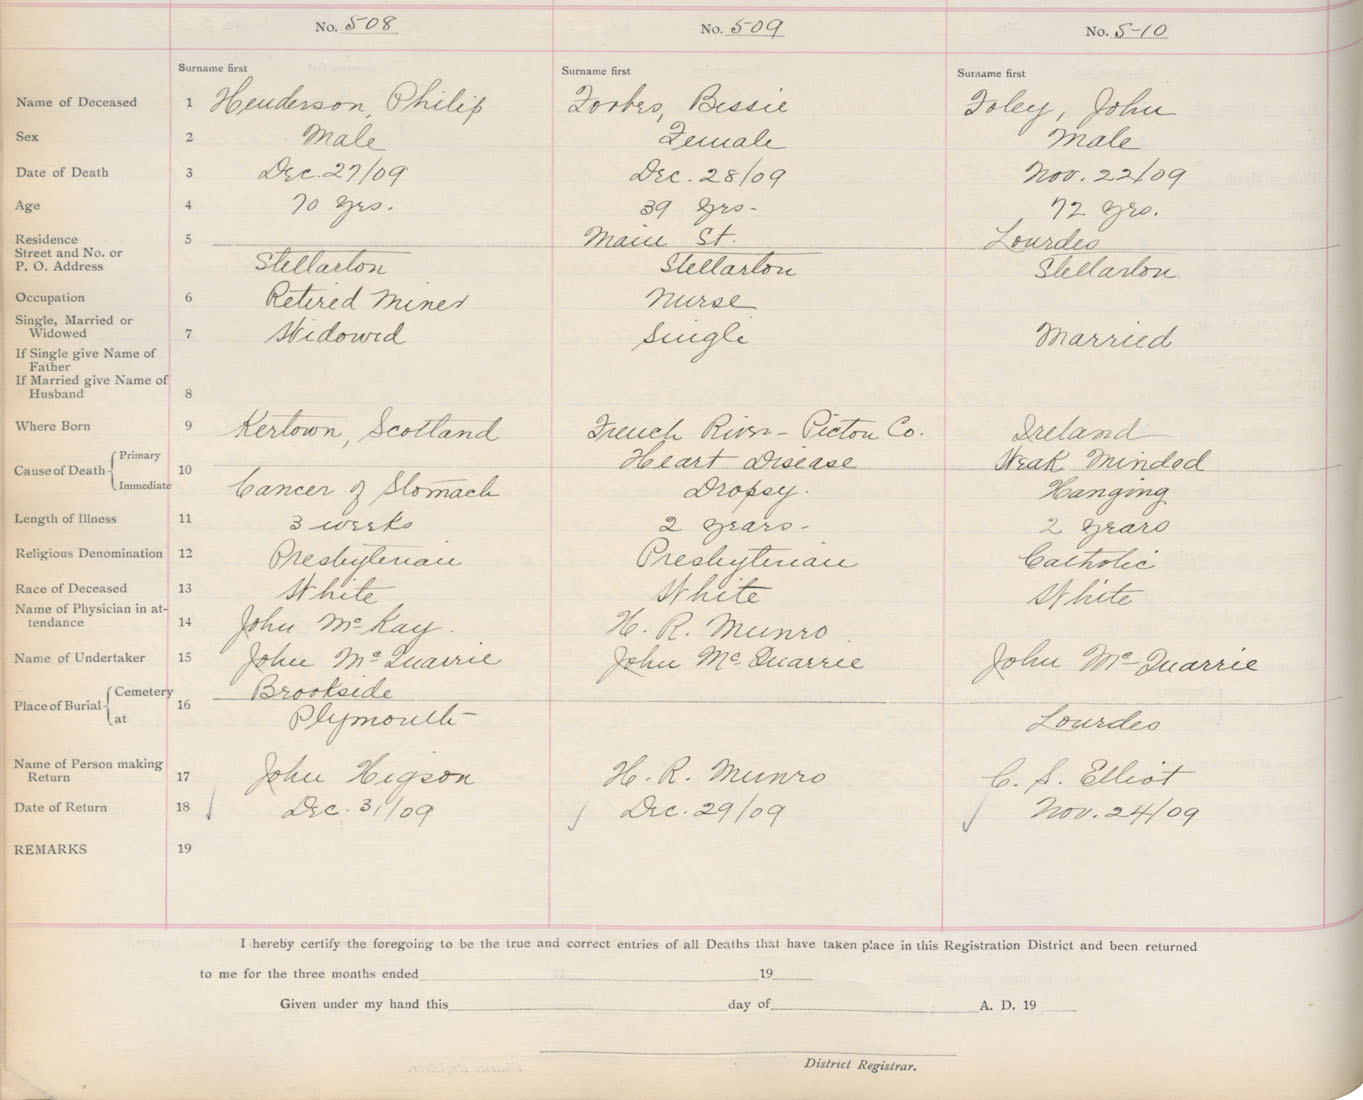 No. 508 No. 509 No. 510
Surname first Surname first Surname first
Name of Deceased 1 Henderson, Philip Forbes, Bessie Foley, John
Sex 2 Male Female Male
Date of Death 3 Dec. 27/09 Dec. 28/09 Nov. 22/09
Age 4 70 yrs. 39 yrs- 72 yrs.
Residence 5 Main St. Lourdes
Street and No. or
P. O. Address Stellarton Stellarton Stellarton
Occupation 6 Retired Miner Nurse
Single, Married or
Widowed 7 Widowed Single Married
If Single give Name of
Father
If Married give Name of
Husband 8
Where Born 9 Kertown, Scotland French River - Pictou Co. Ireland
Cause of Death Primary 10 Heart Disease Weak Minded
Immediate Cancer of Stomach Dropsy. Hanging
Length of Illness 11 3 weeks 2 years- 2 years
Religious Denomination 12 Presbyterian Presbyterian Catholic
Race of Deceased 13 White White White
Name of Physician in at-
tendance 14 John McKay. H. R. Munro
Name of Undertaker 15 John McQuarrie John McQuarrie John McQuarrie
Place of Burial Cemetery 16 Brookside
at Plymouth Lourdes
Name of Person making
Return 17 John Higson H. R. Munro C. S. Elliot
Date of Return 18 Dec. 31/09 Dec. 29/09 Nov. 24/09
REMARKS 19
I hereby certify the foregoing to be the true and correct entries of all Deaths that have taken place in this Registration District and been returned
to me for the three months ended 19
Given under my hand this day of A. D. 19
District Registrar.